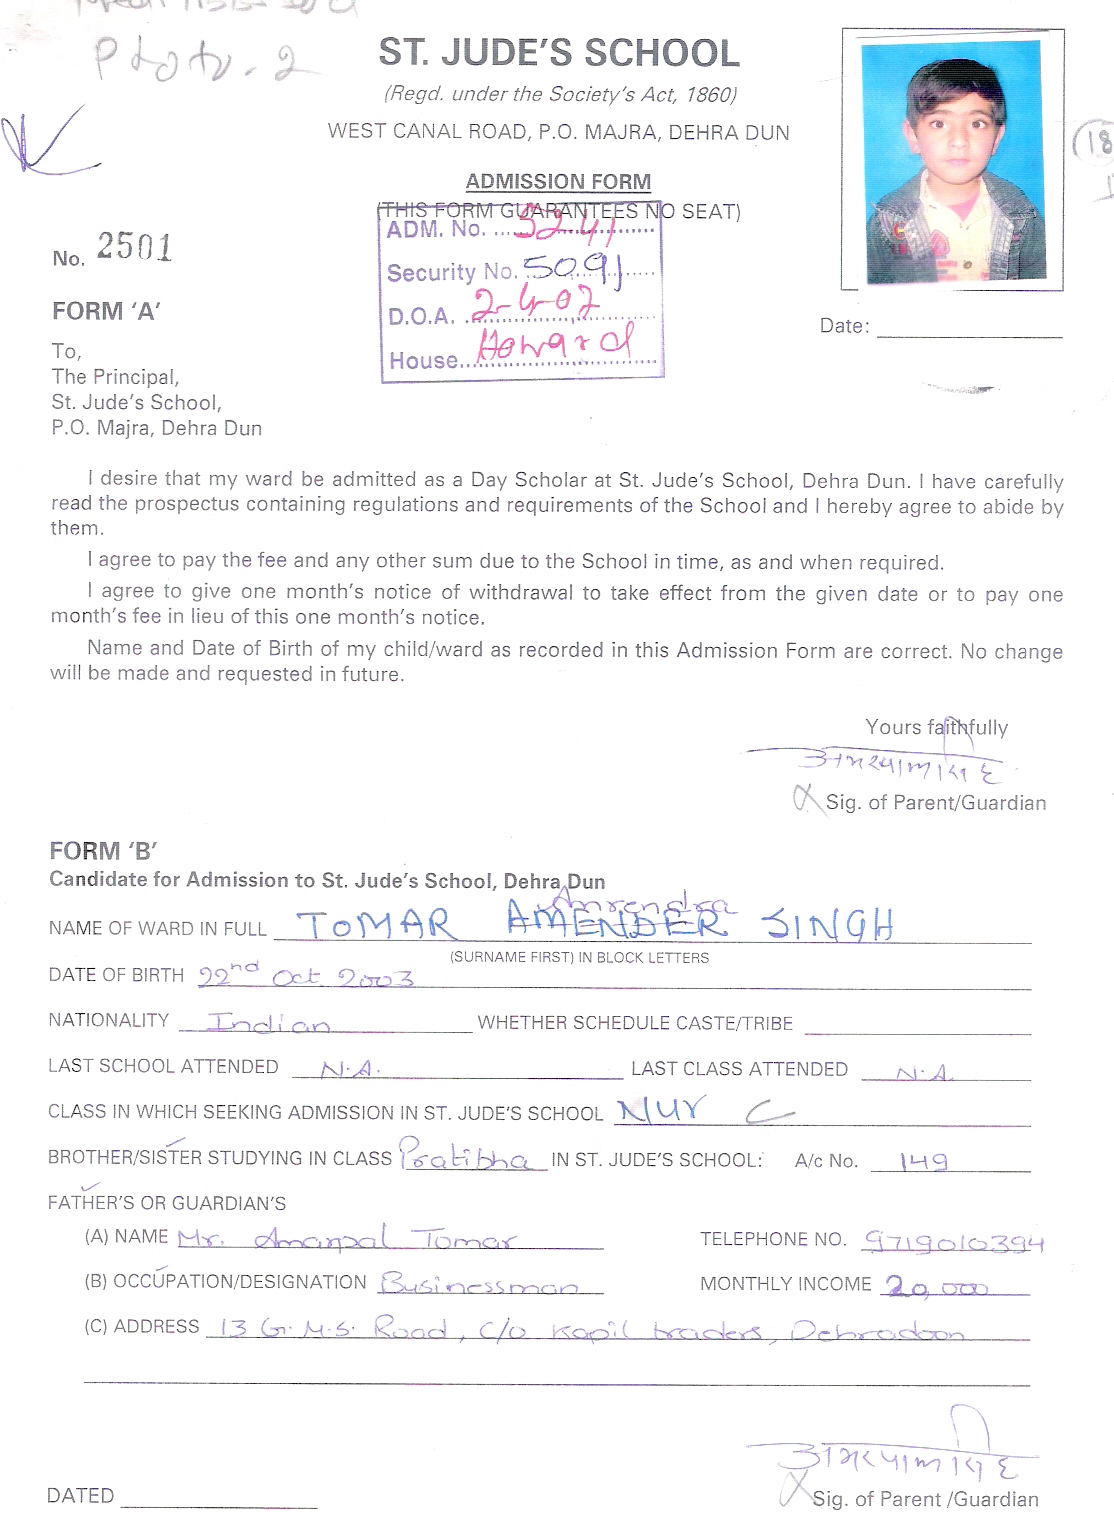 Photo. 2
ST. JUDE'S SCHOOL
(Regd. under the Society's Act, 1860)
WEST CANAL ROAD, P.O. MAJRA, DEHRA DUN
18
ADMISSION FORM
(THIS FORM GUARANTEES NO SEAT)
ADM. No. ....5241...........
No. 2501
Security No. 5091
FORM 'A'
D.O.A. 2-4-07
Date:
House... Howard
To,
The Principal,
St. Jude's School,
P.O. Majra, Dehra Dun
I desire that my ward be admitted as a Day Scholar at St. Jude's School, Dehra Dun. I have carefully
read the prospectus containing regulations and requirements of the School and I hereby agree to abide by
them.
I agree to pay the fee and any other sum due to the School in time, as and when required.
I agree to give one month's notice of withdrawal to take effect from the given date or to pay one
month's fee in lieu of this one month's notice.
Name and Date of Birth of my child/ward as recorded in this Admission Form are correct. No change
will be made and requested in future.
Yours faithfully
Sig. of Parent/Guardian
FORM 'B'
Candidate for Admission to St. Jude's School, Dehra Dun
Amrendra
NAME OF WARD IN FULL TOMAR AMENDER SINGH
(SURNAME FIRST) IN BLOCK LETTERS
DATE OF BIRTH 22nd Oct. 2003
NATIONALITY Indian WHETHER SCHEDULE CASTE/TRIBE
LAST SCHOOL ATTENDED N.A. LAST CLASS ATTENDED N.A.
CLASS IN WHICH SEEKING ADMISSION IN ST. JUDE'S SCHOOL NUR C
BROTHER/SISTER STUDYING IN CLASS Pratibha IN ST. JUDE'S SCHOOL: A/c No. 149
FATHER'S OR GUARDIAN'S
(A) NAME Mr. Amarpal Tomar TELEPHONE NO. 9719010394
(B) OCCUPATION/DESIGNATION Businessman MONTHLY INCOME 20,000
(C) ADDRESS 13 G.M.S. Road, C/O Kapil traders, Dehradoon
DATED
Sig. of Parent /Guardian